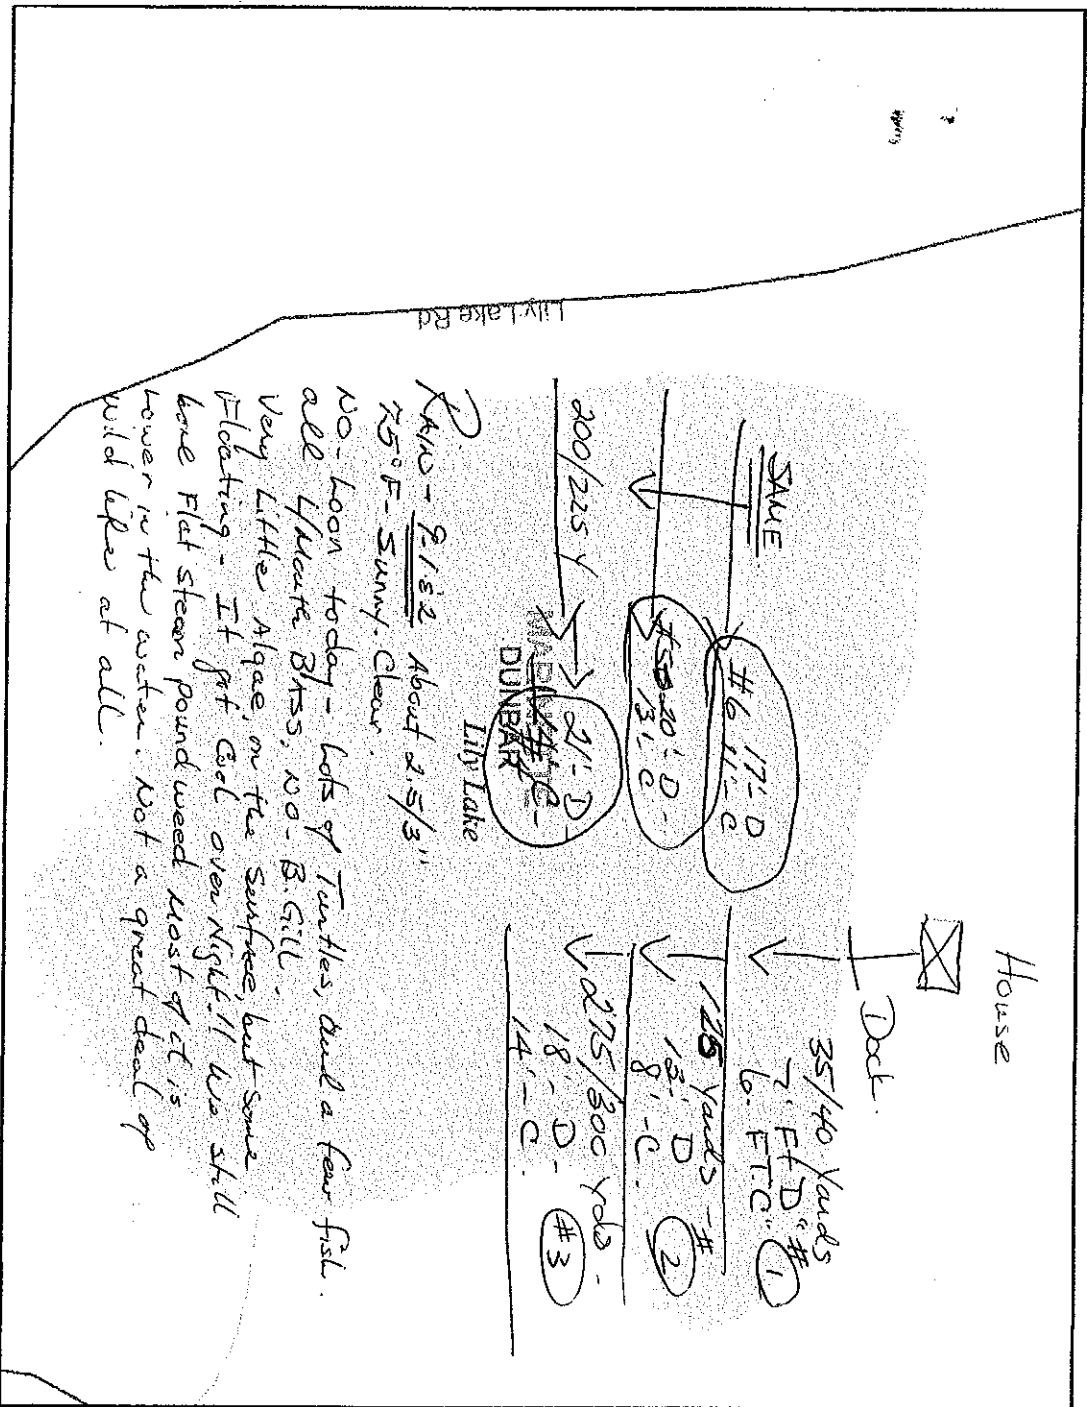 House
Dock.
35/40 Yards
7' Ft D" #
6. FT. C" 1
125 Yards - #
13' D 2
8' - C.
275/300 Yds -
18' - D - #3
14' - C.
SAME
#6 17' - D
11' - C
20' - D -
13' - C
200/225 Y
21' - D -
DUNBAR
Lily Lake
Lily Lake Rd
RAIN - 9-1 & 2 About 2.5/3"
75° F - Sunny. Clear.
NO - Loon today - Lots of Turtles, and a few fish.
all L/Mouth BASS, NO - B. Gill.
Very Little Algae, on the surface, but some
Floating - It got Cool over Night. have still
have Flat steem poundweed Most of it is
Lower in the water. Not a great deal of
wild life at all.